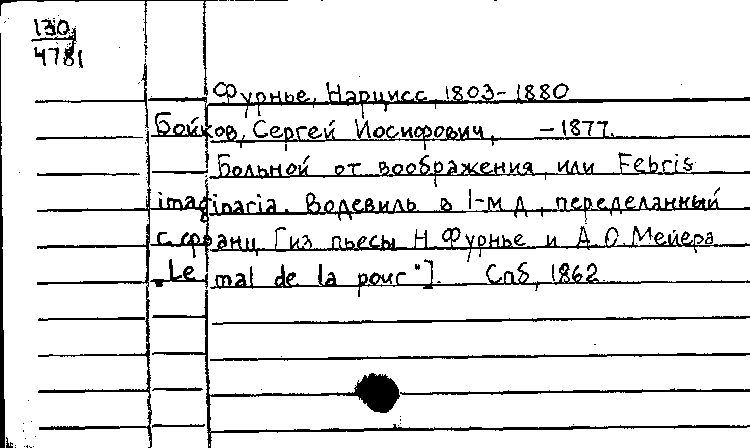 130
4781
Фурнье, Нарцисс, 1803-1880
Бойков, Сергей Иосифович, -1877.
Больной от воображения, или Febris
imaginaria. Водевиль в 1-м д., переделанный
с франц. [из пьесы Н. Фурнье и А.О. Мейера
"Le mal de la peur"]. Спб, 1862